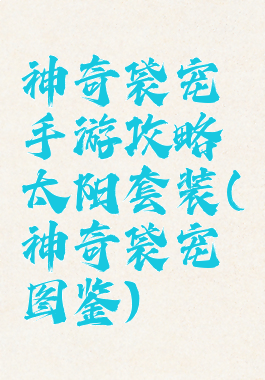 神奇袋宠
手游攻略
太阳套装(
神奇袋宠
图鉴)